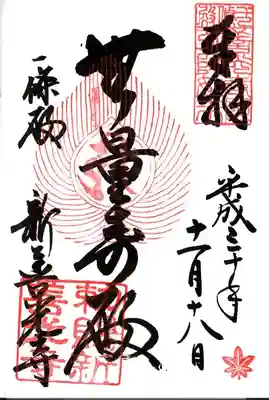 奉拝
平成三十年
十一月十八日
無量寿殿
一條殿
新善光寺